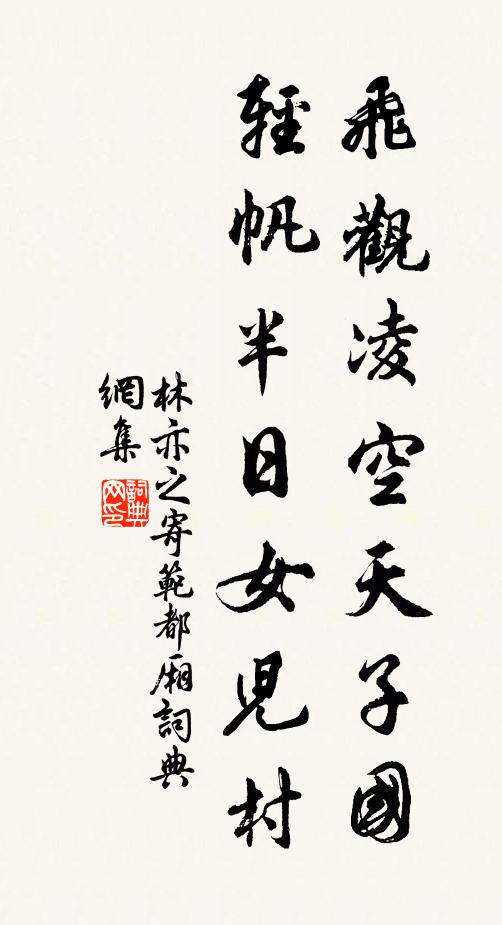 飛觀凌空天子國
輕帆半日女兒村
林亦之寄範都廂詞典
網集
詞典
网印